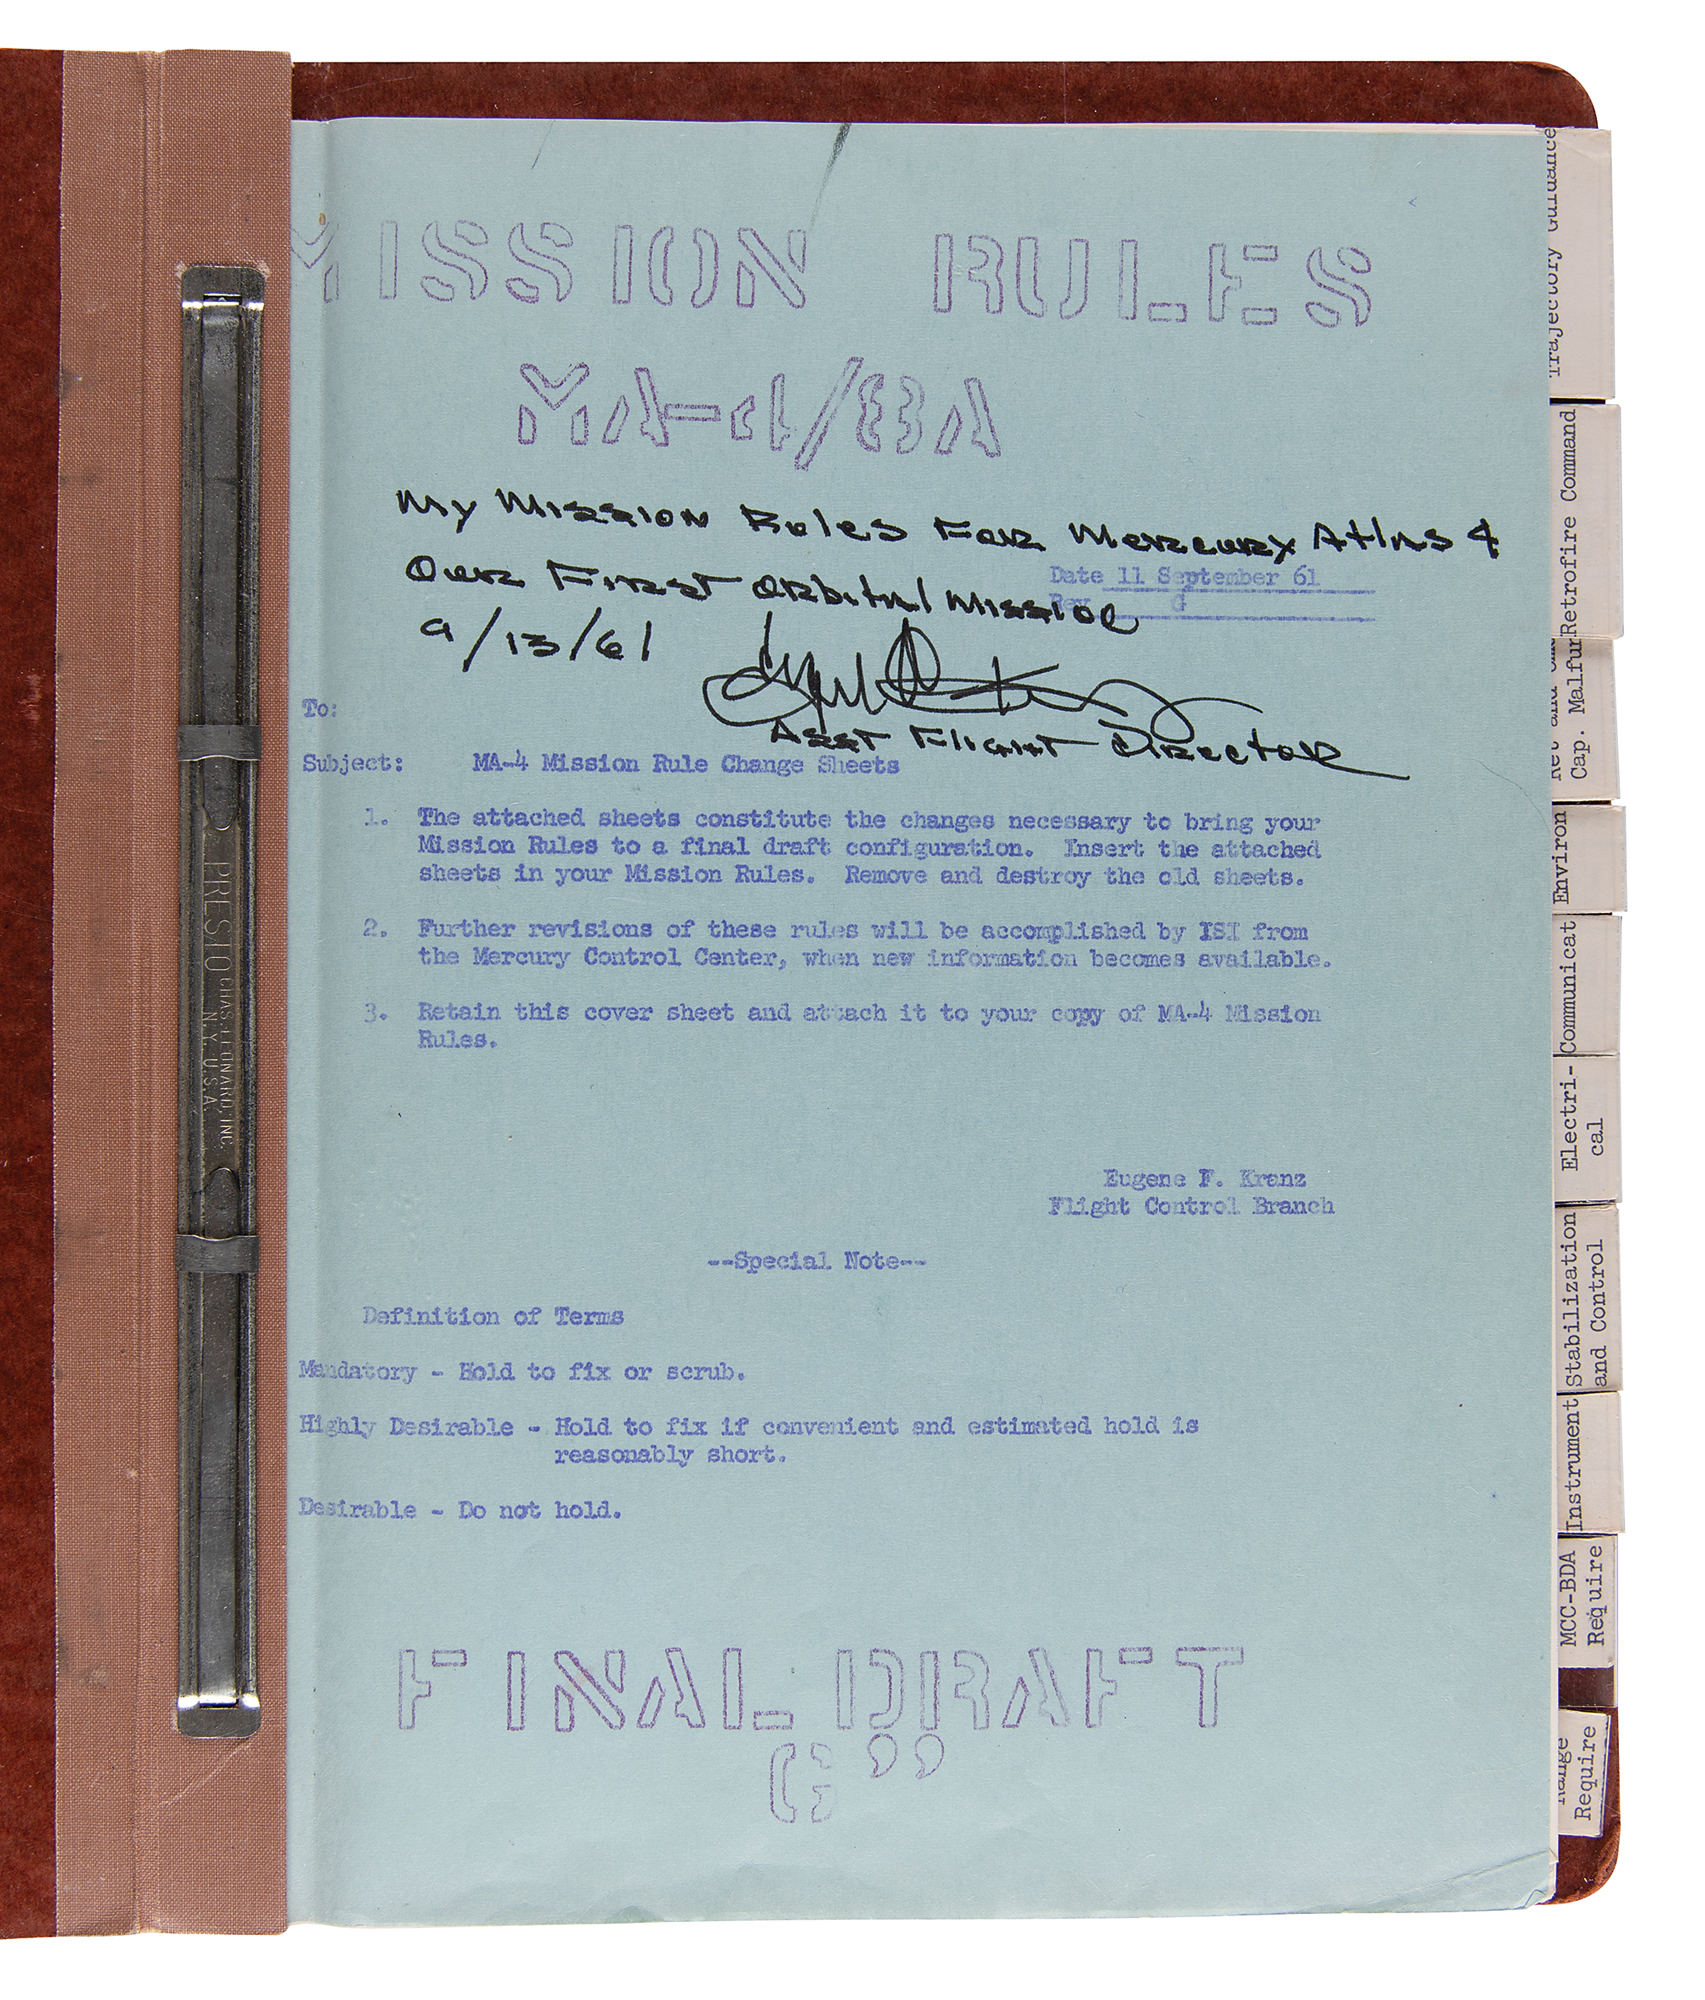 MISSION RULES
MA-4/8A
My Mission Rules For Mercury Atlas 4
Our First Orbital Mission
9/13/61
Date 11 September 61
Rev G
Asst Flight Director
To:
Subject: MA-4 Mission Rule Change Sheets
1. The attached sheets constitute the changes necessary to bring your
Mission Rules to a final draft configuration. Insert the attached
sheets in your Mission Rules. Remove and destroy the old sheets.
2. Further revisions of these rules will be accomplished by ISI from
the Mercury Control Center, when new information becomes available.
3. Retain this cover sheet and attach it to your copy of MA-4 Mission
Rules.
Eugene F. Kranz
Flight Control Branch
--Special Note--
Definition of Terms
Mandatory - Hold to fix or scrub.
Highly Desirable - Hold to fix if convenient and estimated hold is
reasonably short.
Desirable - Do not hold.
FINAL DRAFT
G”
PRESTO CHAS. LEONARD, INC.
N.Y. U.S.A.
Trajectory Guidance
Retrofire Command
Cap. Malfun
Environ
Communicat
Electri-
cal
Stabilization
and Control
Instrument
MCC-BDA
Require
Range
Require